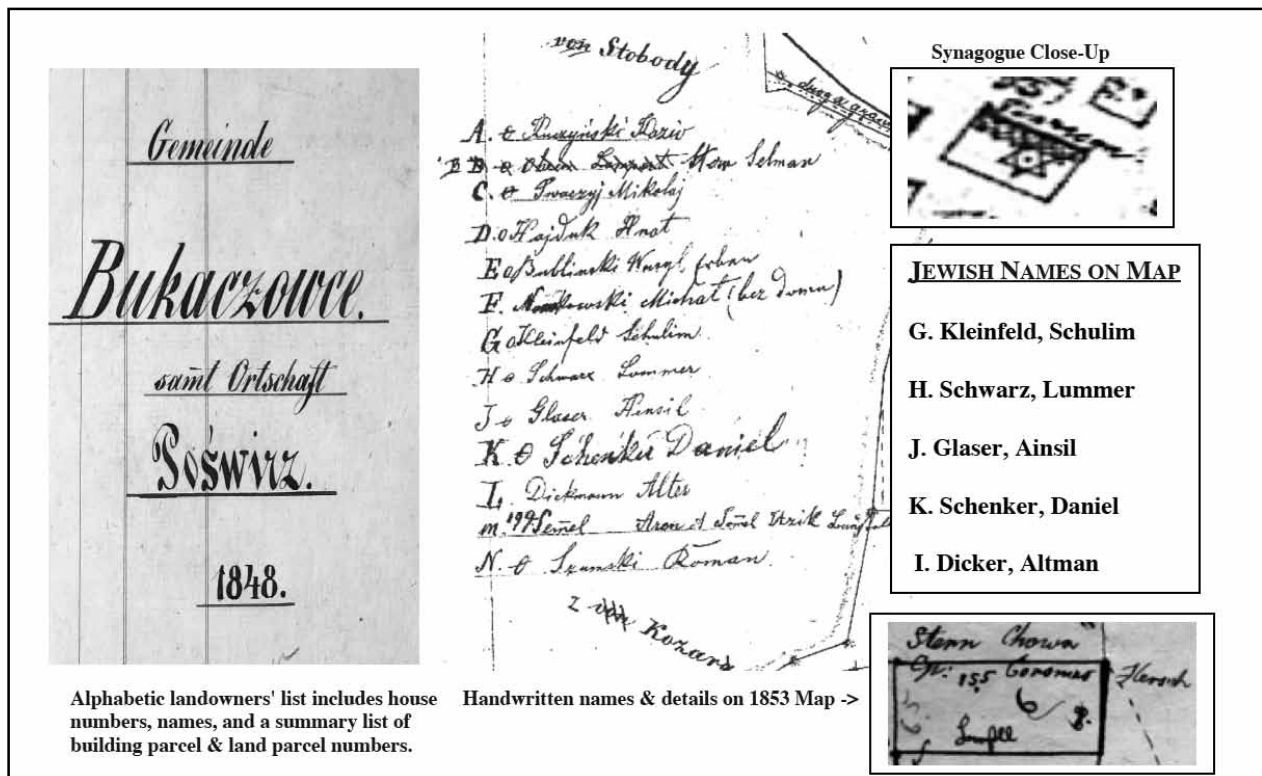 Gemeinde
Bukaczowce.
samt Ortschaft
Poświrz.
1848.
Alphabetic landowners' list includes house
numbers, names, and a summary list of
building parcel & land parcel numbers.
von Stobody
A.
B Selman
C. Mikolaj
D. Hajduk Hnat
E
F. Michał (bez domu)
G Kleinfeld Schulim
H Schwarz Lummer
J Glaser Ainsil
K. Schenker Daniel
I. Dickmann Alter
m. 199 Semel Aron
N. Szumski Roman
z von Kozara
Handwritten names & details on 1853 Map ->
Synagogue Close-Up
JEWISH NAMES ON MAP
G. Kleinfeld, Schulim
H. Schwarz, Lummer
J. Glaser, Ainsil
K. Schenker, Daniel
I. Dicker, Altman
Stern Chowa
155
Hersch